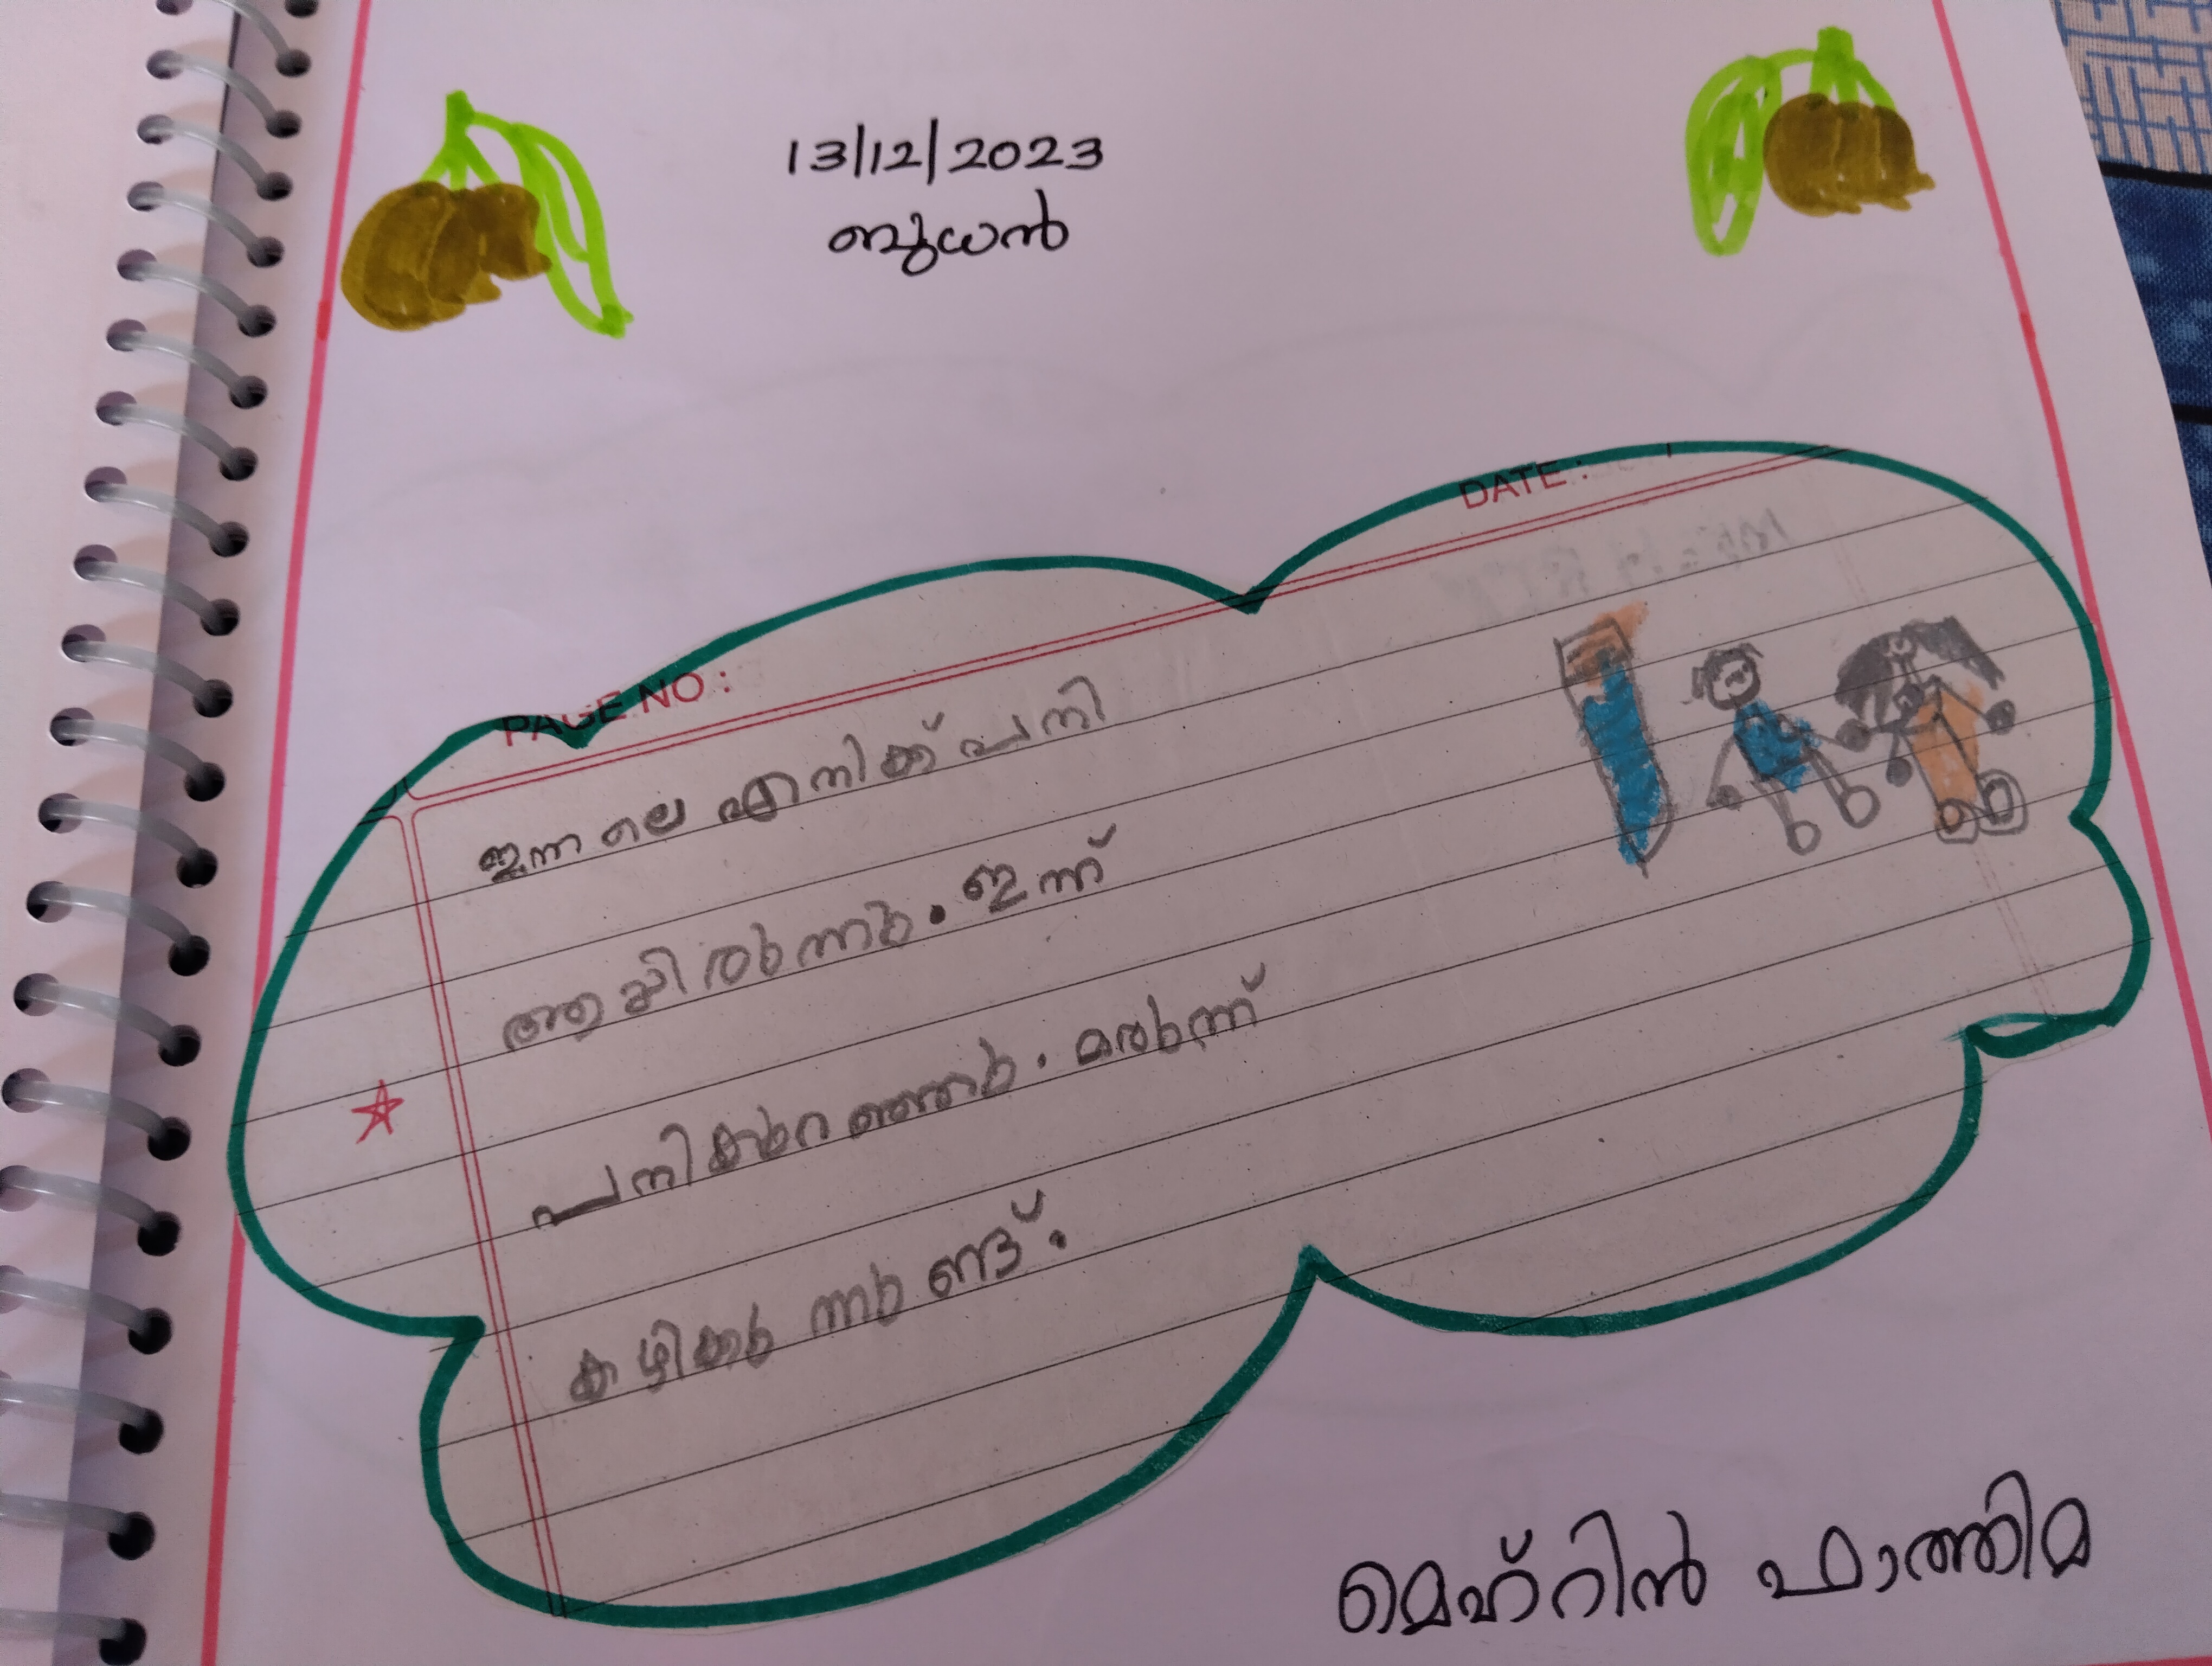 13/12/2023
ബുധൻ
DATE :
PAGE NO :
ഇന്നലെ എനിക്ക് പനി
ആയിരുന്നു. ഇന്ന്
പനി കുറഞ്ഞു. മരുന്ന്
കഴിക്കുന്നുണ്ട്.
മെഹ്റിൻ ഫാത്തിമ